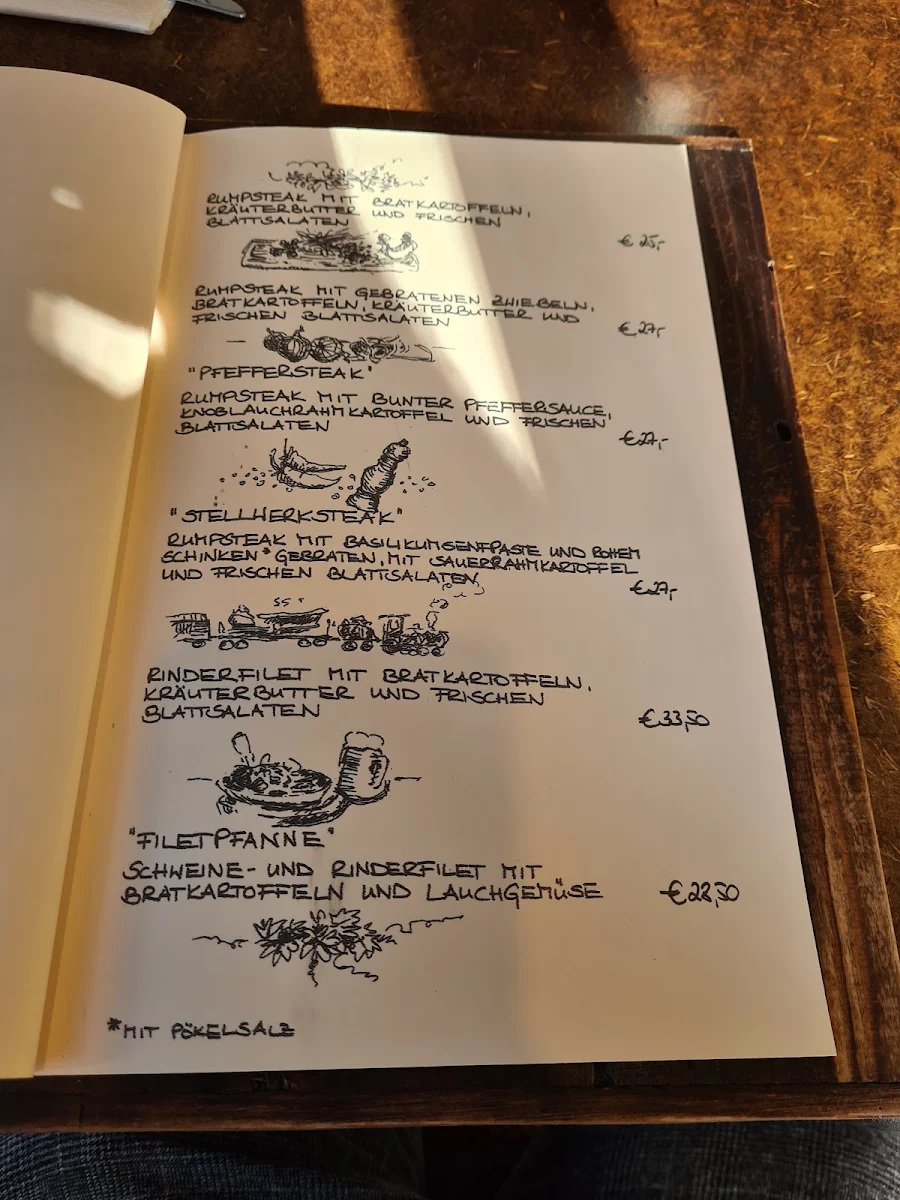 RUMPSTEAK MIT BRATKARTOFFELN,
KRÄUTERBUTTER UND FRISCHEN
BLATTSALATEN
€ 25,-
RUMPSTEAK MIT GEBRATENEN ZWIEBELN,
BRATKARTOFFELN, KRÄUTERBUTTER UND
FRISCHEN BLATTSALATEN
€ 27,-
"PFEFFERSTEAK"
RUMPSTEAK MIT BUNTER PFEFFERSAUCE,
KNOBLAUCHRAHMKARTOFFEL UND FRISCHEN
BLATTSALATEN
€ 27,-
"STELLWERKSTEAK"
RUMPSTEAK MIT BASILIKUMSENFPASTE UND ROHEM
SCHINKEN* GEBRATEN, MIT SAUERRAHMKARTOFFEL
UND FRISCHEN BLATTSALATEN
€ 27,-
RINDERFILET MIT BRATKARTOFFELN,
KRÄUTERBUTTER UND FRISCHEN
BLATTSALATEN
€ 33,50
"FILETPFANNE"
SCHWEINE- UND RINDERFILET MIT
BRATKARTOFFELN UND LAUCHGEMÜSE € 28,50
*MIT PÖKELSALZ